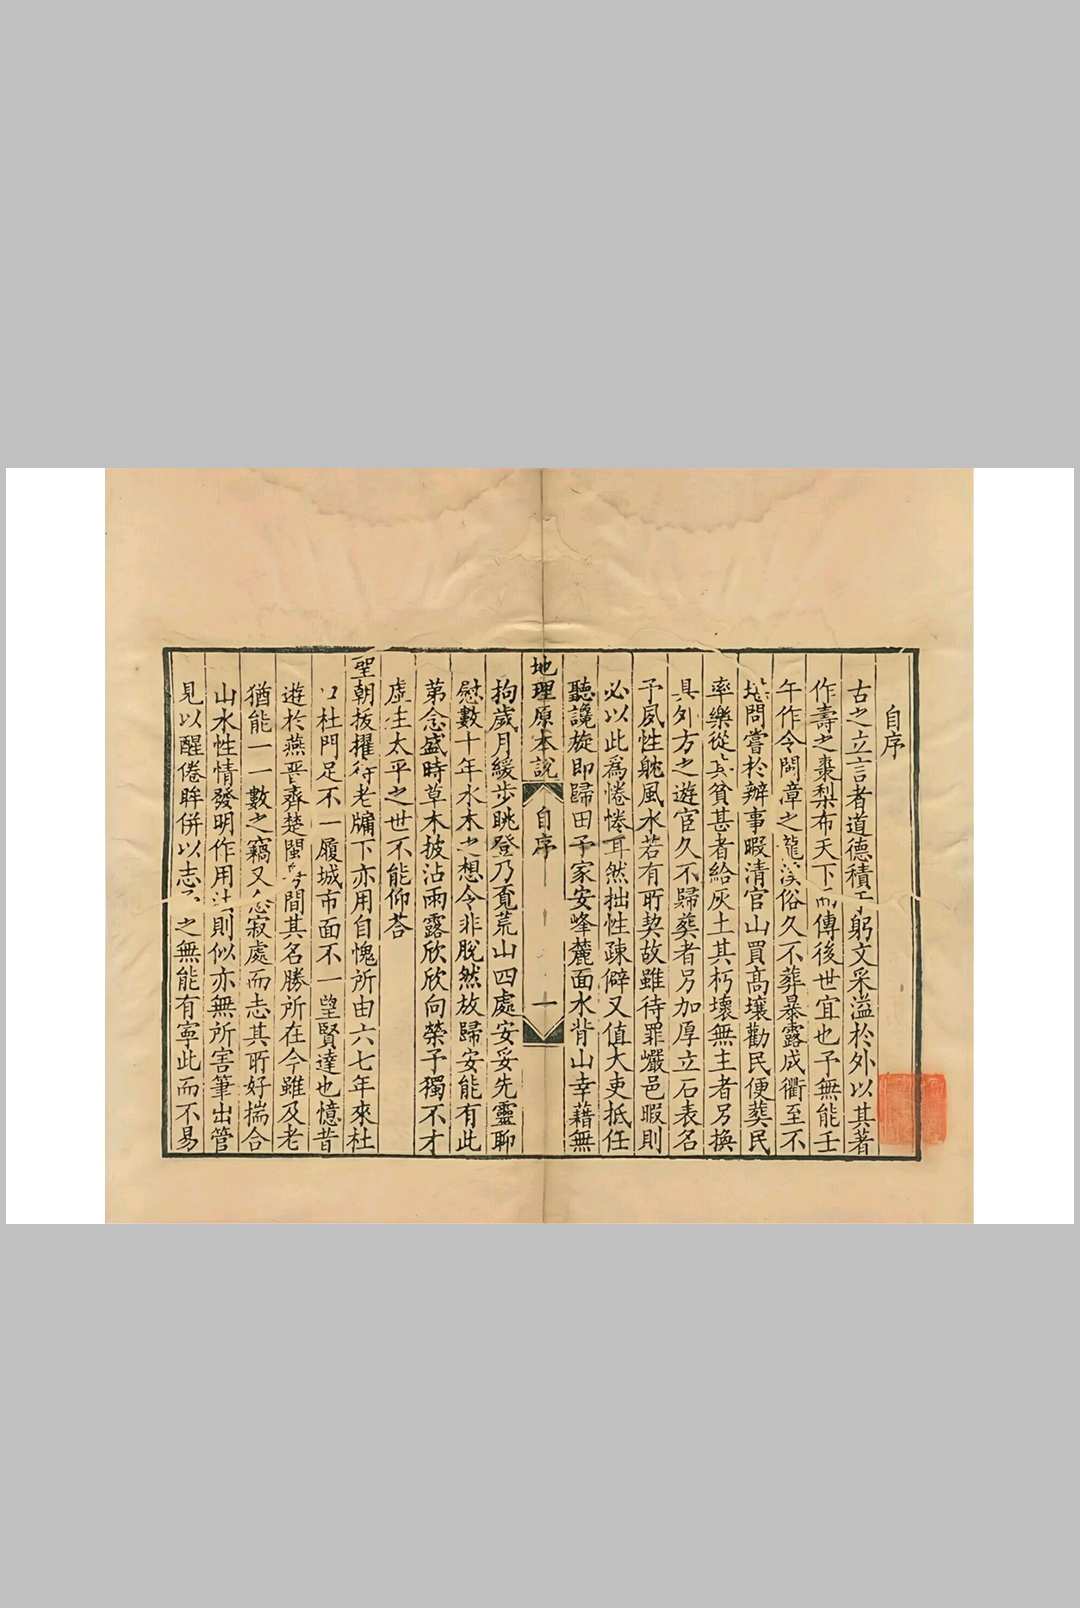 自序
古之立言者道德積于躬文采溢於外以其著
作壽之棗梨布天下而傳後世宜也予無能壬
午作令閩漳之龍溪俗久不葬暴露成衢至不
堪問嘗於辦事暇清官山買高壤勸民便葬民
率樂從其貧甚者給灰土其朽壞無主者另換
具外方之遊宦久不歸葬者另加厚立石表名
予夙性躭風水若有所契故雖待罪巗邑暇則
必以此爲惓惓耳然拙性疎僻又值大吏抵任
聽讒旋即歸田予家安峰麓面水背山幸藉無
地理原本說 自序 一
拘歲月緩步眺登乃覔荒山四處安妥先靈聊
慰數十年水木之想令非脫然放歸安能有此
第念盛時草木披沾雨露欣欣向榮予獨不才
虛生太平之世不能仰荅
聖朝拔擢待老牖下亦用自愧所由六七年來杜
杜門足不一履城市面不一望賢達也憶昔
遊於燕晋齊楚閩粤間其名勝所在今雖及老
猶能一一數之竊又念寂處而志其所好揣合
山水性情發明作用法則似亦無所害筆出管
見以醒倦眸併以志予之無能有寧此而不易